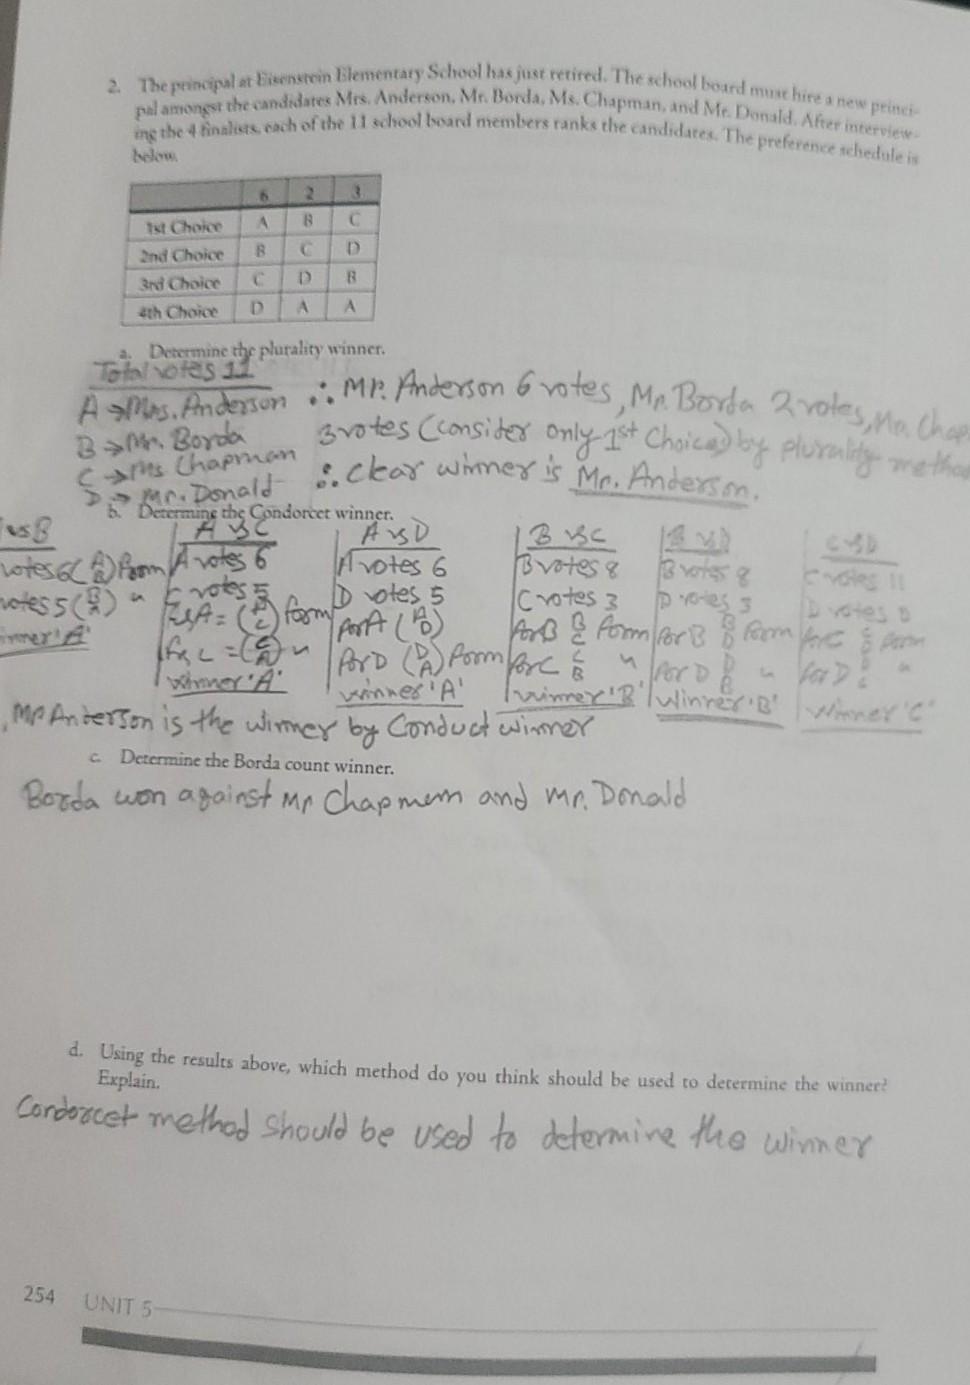 2. The principal at Eisenstein Elementary School has just retired. The school board must hire a new princi-
pal amongst the candidates Mrs. Anderson, Mr. Borda, Ms. Chapman, and Mr. Donald. After interview-
ing the 4 finalists, each of the 11 school board members ranks the candidates. The preference schedule is
below.
6 2 3
1st Choice A B C
2nd Choice B C D
3rd Choice C D B
4th Choice D A A
a. Determine the plurality winner.
Total votes 11
A → Mrs. Anderson ∴ Mr. Anderson 6 votes, Mr. Borda 2 votes, Mr. Chap
B → Mr. Borda 3 votes (consider only 1st Choice) by plurality metho
C → Ms Chapman ∴ clear winner is Mr. Anderson.
D → Mr. Donald
b. Determine the Condorcet winner.
vs B A vs C A vs D B vs C B vs D C vs D
votes 6 (A/B) from A votes 6 A votes 6 B votes 8 B votes 8 C votes 11
votes 5 (B/A) " C votes 5 D votes 5 C votes 3 D votes 3 D votes 0
winner 'A' A = (A/C) form for A (A/D) for B B/C form for B B/D form for C C/D form
C = (C/A) " for D (D/A) form for C C/B " for D D/B " for D D/C "
winner 'A' winner 'A' winner 'B' winner 'B' winner 'C'
Mr Anterson is the winner by Conduct winner
c. Determine the Borda count winner.
Borda won against Mr Chapmam and Mr. Donald
d. Using the results above, which method do you think should be used to determine the winner?
Explain.
Condorcet method should be used to determine the winner
254 UNIT 5